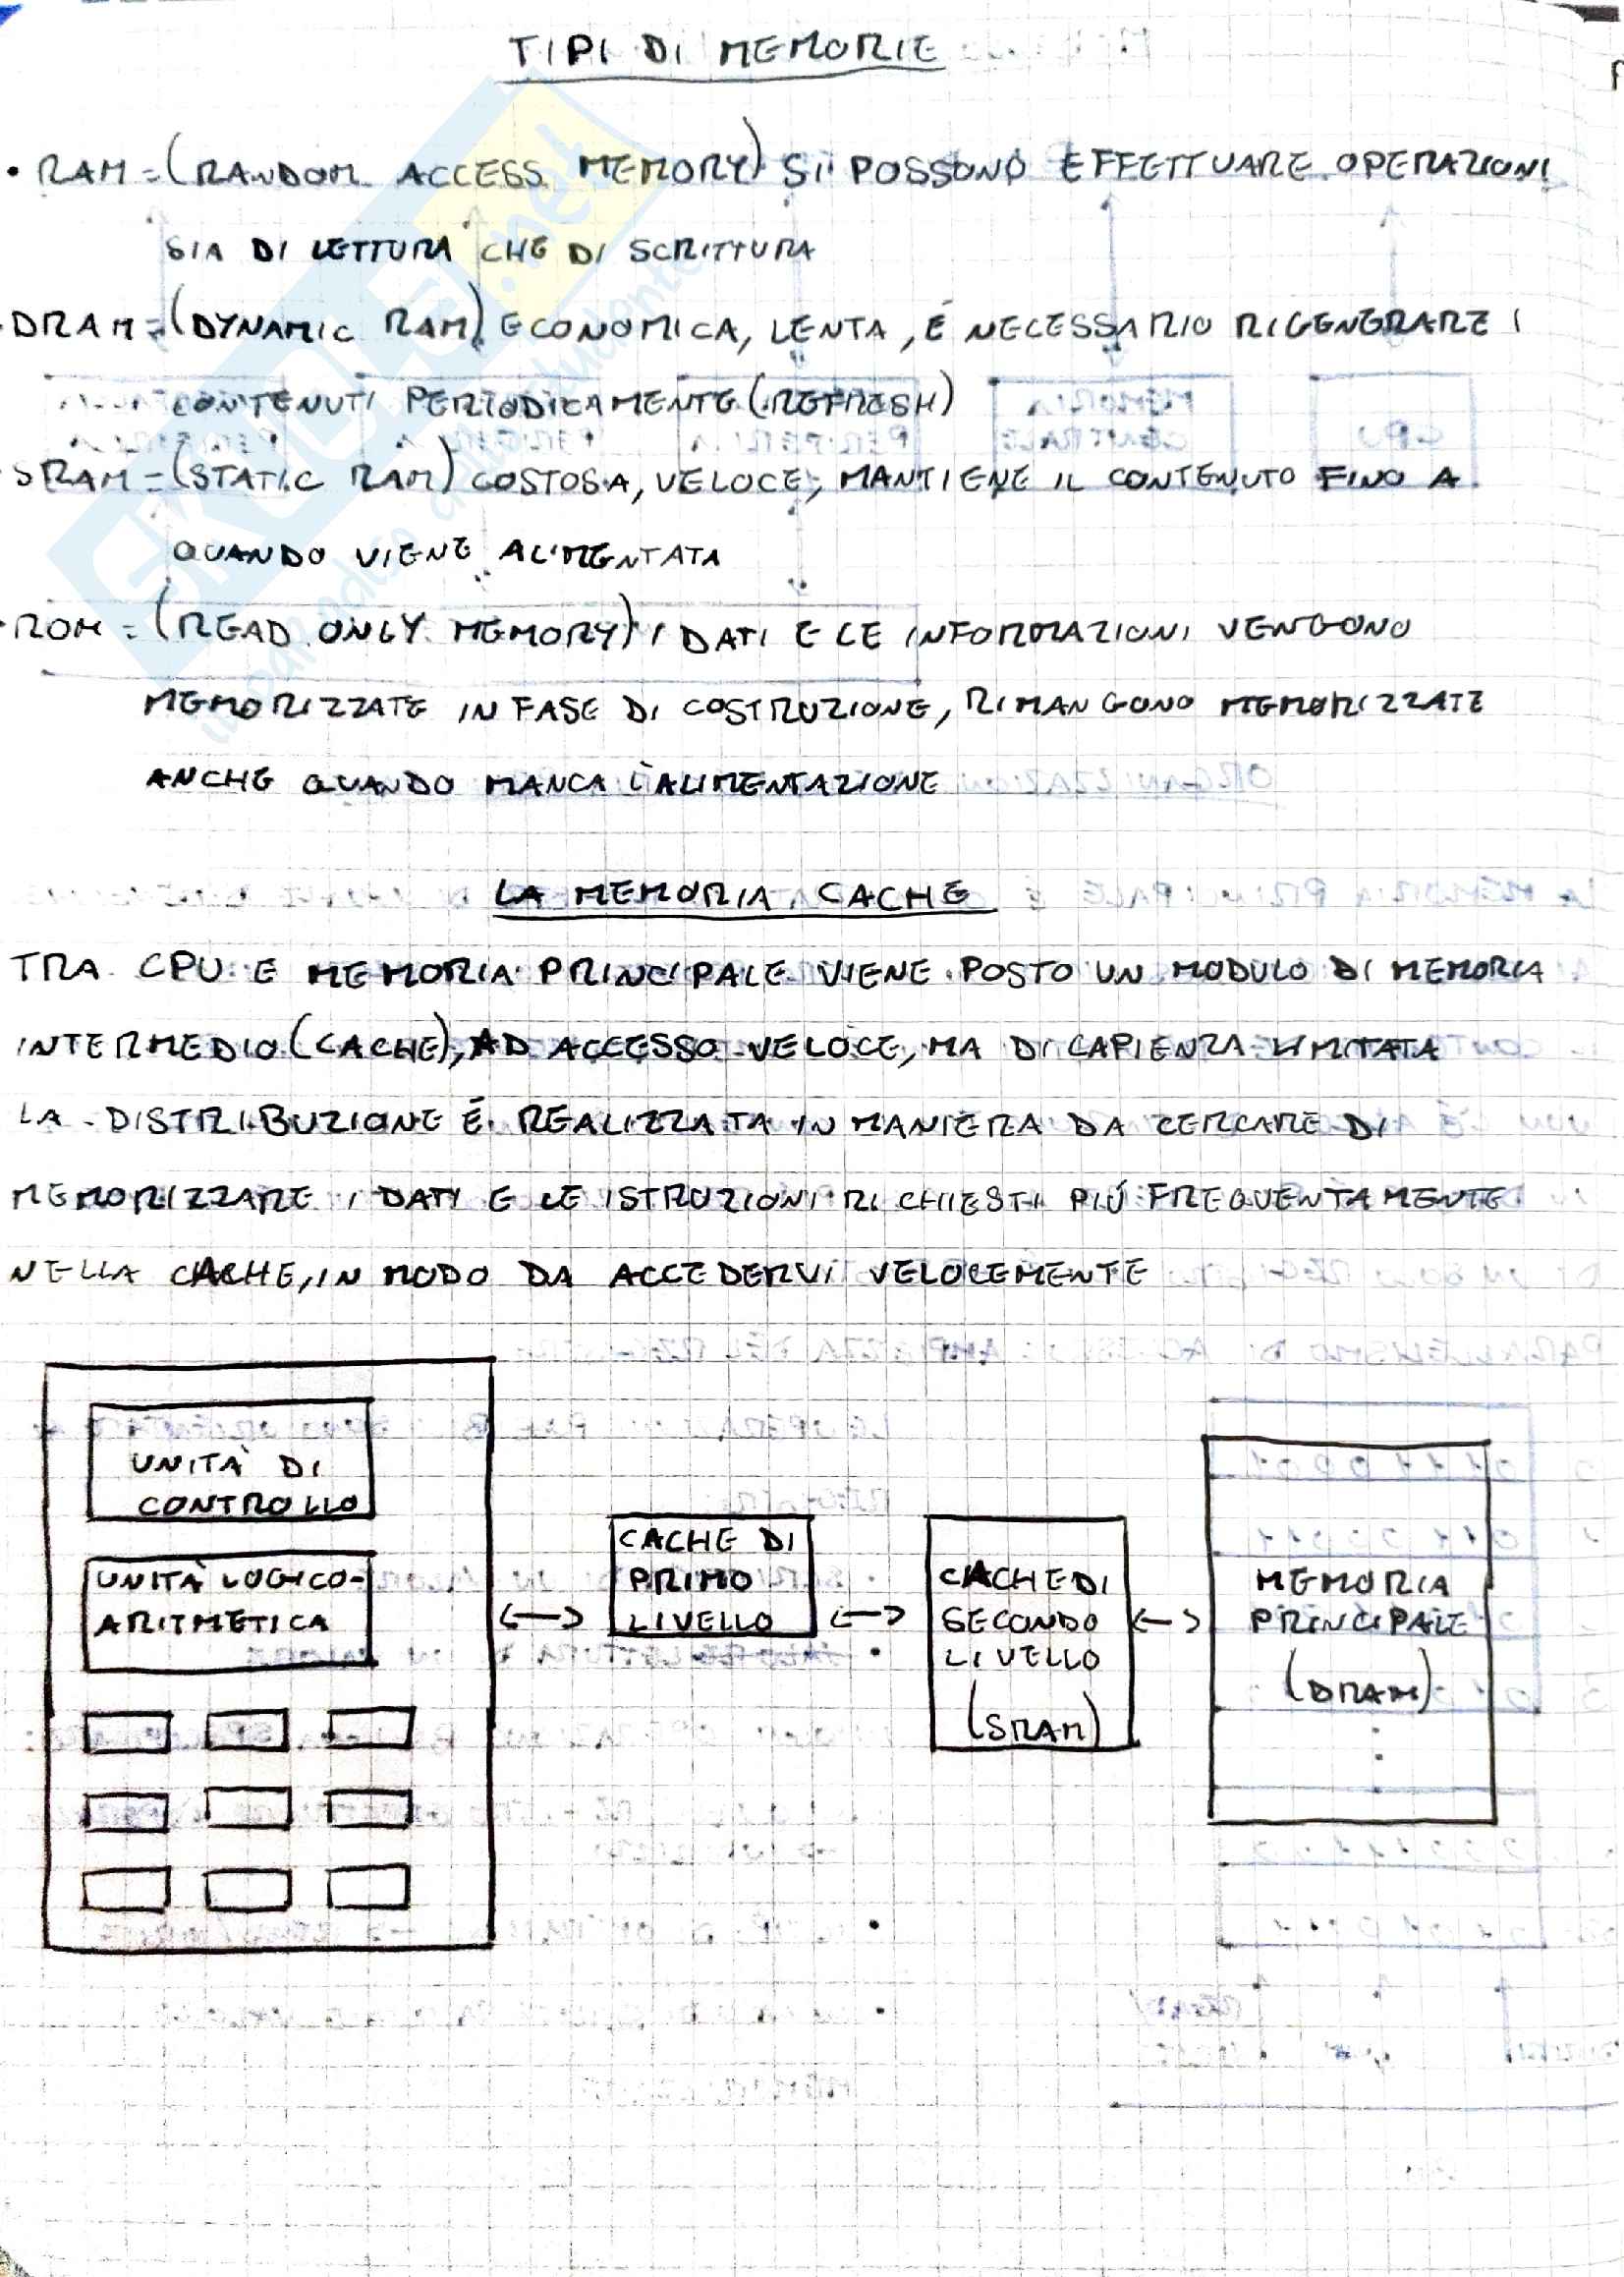 TIPI DI MEMORIE
• RAM = (RANDOM ACCESS MEMORY) SI POSSONO EFFETTUARE OPERAZIONI
SIA DI LETTURA CHE DI SCRITTURA
• DRAM = (DYNAMIC RAM) ECONOMICA, LENTA, É NECESSARIO RIGENERARE I
CONTENUTI PERIODICAMENTE (REFRESH)
• SRAM = (STATIC RAM) COSTOSA, VELOCE, MANTIENE IL CONTENUTO FINO A
QUANDO VIENE ALIMENTATA
• ROM = (READ ONLY MEMORY) I DATI E LE INFORMAZIONI VENGONO
MEMORIZZATE IN FASE DI COSTRUZIONE, RIMANGONO MEMORIZZATE
ANCHE QUANDO MANCA L'ALIMENTAZIONE
LA MEMORIA CACHE
TRA CPU E MEMORIA PRINCIPALE VIENE POSTO UN MODULO DI MEMORIA
INTERMEDIO (CACHE), AD ACCESSO VELOCE, MA DI CAPIENZA LIMITATA
LA DISTRIBUZIONE É REALIZZATA IN MANIERA DA CERCARE DI
MEMORIZZARE I DATI E LE ISTRUZIONI RICHIESTI PIÚ FREQUENTAMENTE
NELLA CACHE, IN MODO DA ACCEDERVI VELOCEMENTE
UNITÀ DI
CONTROLLO
UNITÀ LOGICO-
ARITMETICA
CACHE DI
PRIMO
LIVELLO
CACHE DI
SECONDO
LIVELLO
(SRAM)
MEMORIA
PRINCIPALE
(DRAM)